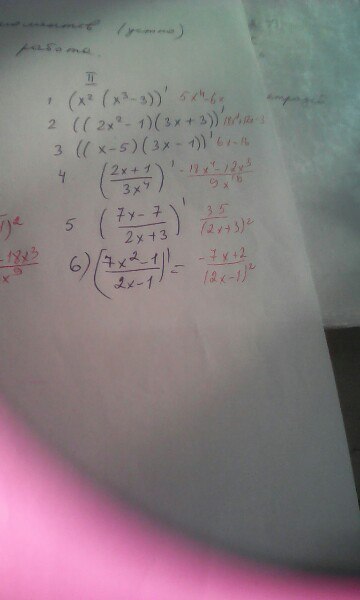 (устно)
работа.
II
1 (x² (x³-3))' 5x⁴-6x
2 ((2x²-1)(3x+3))'
3 ((x-5)(3x-1))' 6x-16
4 (2x+1/3x⁴)' -18x⁴-12x³/9x⁸
5 (7x-7/2x+3)' 35/(2x+3)²
6) (7x²-1/2x-1)' = -7x+2/(2x-1)²